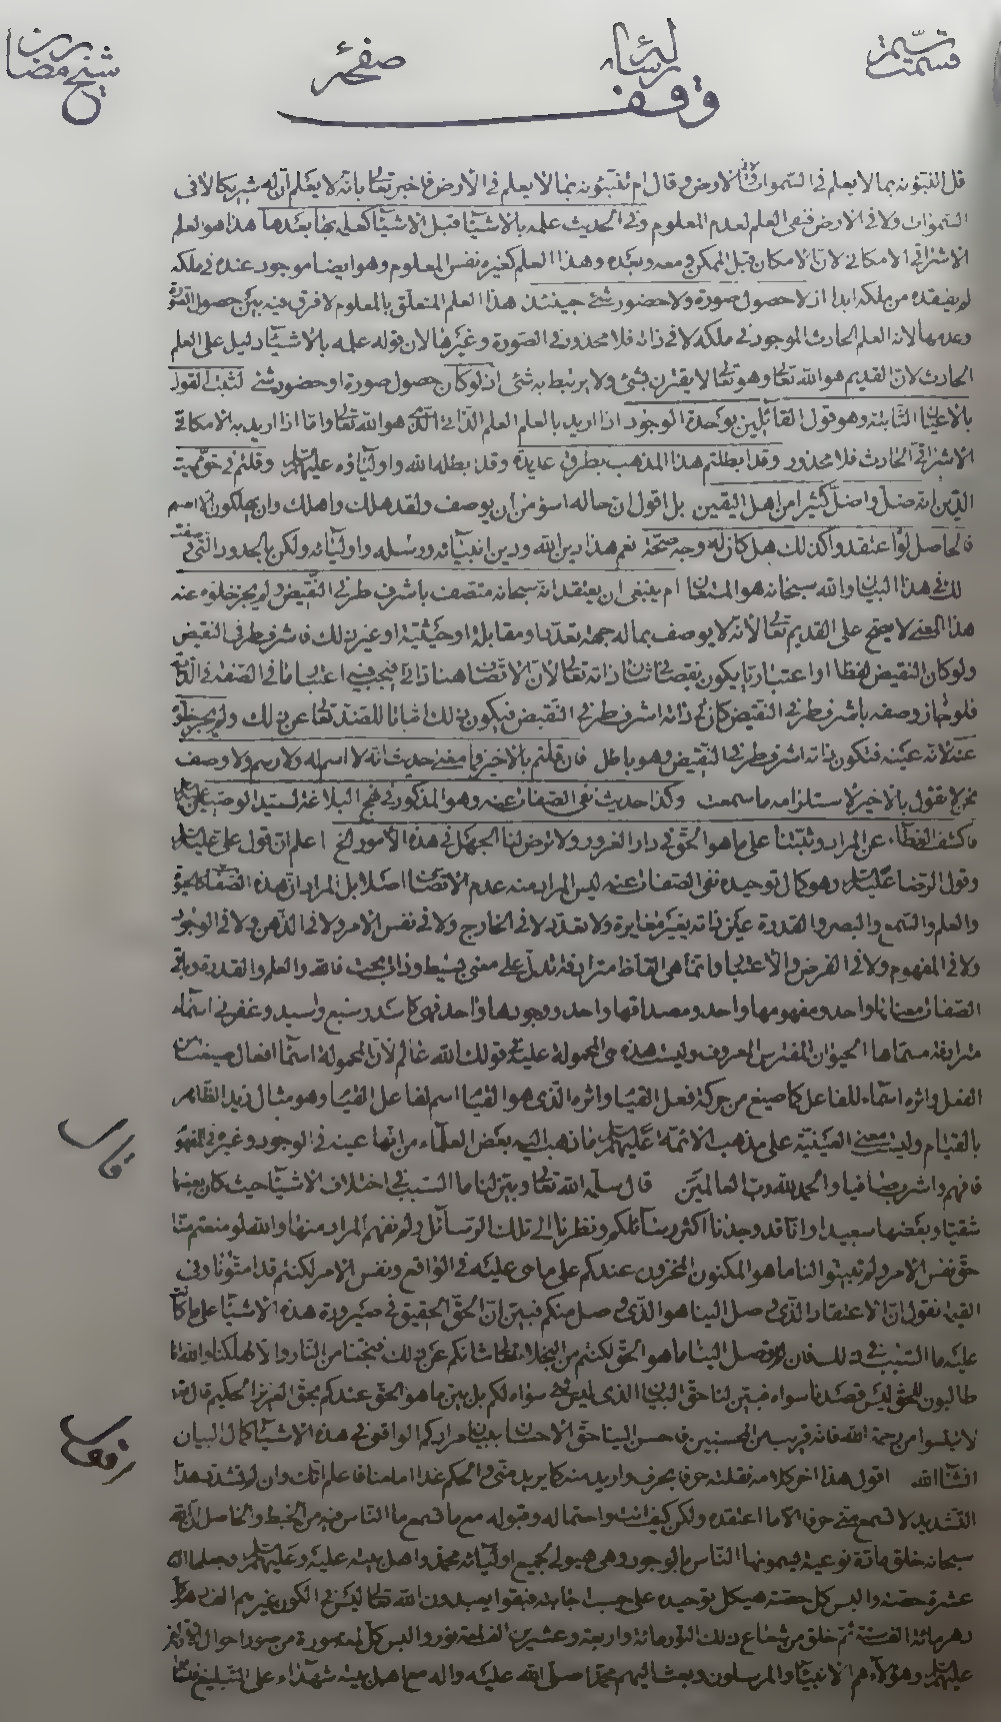 قل اتنبؤنه بما لا يعلم في السموات ولا في الارض وقال ام تنبئونه بما لا يعلم في الارض فاخبر تعالى بانه لا يعلم ان له شريكا لا في
السموات ولا في الارض فنفى العلم لعدم المعلوم وفي الحديث علمه بالاشياء قبل الاشياء كعلمه بها بعدها هذا هو العلم
الاشراقي الامكاني لان الامكان قبل الممكن ومعه وبعده وهذا العلم كغيره نفس المعلوم وهو ايضا موجود عنده في ملكه
لم يفقده من ملكه ابدا اذ لا حصول صورة ولا حضور شئ حينئذ هذا العلم المتعلق بالمعلوم لا فرق فيه بين حصول الصورة
وعدمها لانه العلم الحادث الموجود في ملكه لا في ذاته فلا محذور في الصورة وغيرها لان قوله علمه بالاشياء دليل على العلم
الحادث لان القديم هو الله تعالى وهو تعالى لا يقترن بشئ ولا يرتبط به شئ اذ لو كان حصول صورة او حضور شئ لثبت القول
بالاعيان الثابتة وهو قول القائلين بوحدة الوجود اذا اريد بالعلم العلم الذاتي الذي هو الله تعالى واما اذا اريد به الامكاني
الاشراقي الحادث فلا محذور وقد ابطلتم هذا المذهب بطرق عديدة وقد ابطله الله واولياؤه عليهم السلم وقلتم في حق مميت
الدين انه ضل واضل كثيرا من اهل اليقين بل اقول ان حاله اسوء من ان يوصف ولقد هلك واهلك وان يهلكون الا انفسهم
فالحاصل لو اعتقد واكد لك هل كان له وجه صحة نعم هذا دين الله ودين انبيائه ورسله واوليائه ولكن بالحدود التي وصفت
لك في هذا البيان والله سبحانه هو المستعان ام ينبغي ان يعتقد انه سبحانه متصف باشرف طرفي النقيض ولم يجز خلوه عنه
هذا المعنى لا يصح على القديم تعالى لانه لا يوصف بما له جهة تعدد او مقابلة او حيثية او غير ذلك فاشرف طرفي النقيض
ولو كان النقيض لفظا او اعتباريا يكون نقيضا لشان ذاته تعالى لان الاتصاف هنا ذاتي فيجب فيه اعتبار ما في الصفة في الذات
فلو جاز وصفه باشرف طرفي النقيض كان في ذاته اشرف طرفي النقيض فيكون ذلك اثباتا للضد تعالى عن ذلك ولم يجز خلوه
عنه لانه عينه فتكون ذاته اشرف طرفي النقيض وهو باطل فان قلتم بالاخير فما معنى حديث انه لا اسم له ولا رسم ولا وصف
نحن لا نقول بالاخير لاستلزامه ما سمعت وكذا حديث نفي الصفات عنه وهو المذكور في نهج البلاغة لسيد الوصيين عليه السلم
فاكشف الغطاء عن المراد وثبتنا على ما هو الحق في دار الغرور ولا ترض لنا الجهل في هذه الامور الخ اعلم ان قول علي عليه السلم
وقول الرضا عليه السلم وهو كمال توحيده نفي الصفات عنه ليس المراد منه عدم الاتصاف اصلا بل المراد ان هذه الصفات كالحيوة
والعلم والسمع والبصر والقدرة عين ذاته بغير مغايرة ولا تعدد لا في الخارج ولا في نفس الامر ولا في الذهن ولا في الوجود
ولا في المفهوم ولا في الفرض والاعتبار وانما هي الفاظ مترادفة تدل على معنى بسيط وذات بحت فالله والعلم والقدرة وباقي
الصفات معناها واحد ومفهومها واحد ومصداقها واحد ووجودها واحد فهي كاسد وسبع واسيد وعفرني اسماء
مترادفة مسماها الحيوان المفترس المعروف وليست هذه هي المحمولة عليه في قولك الله عالم لان المحمولة اسماء افعال صيغت من
الفعل واثره اسماء للفاعل كما صيغ من حركة فعل القيام واثره الذي هو القيام اسم لفاعل القيام وهو مثال زيد الظاهر
بالقيام وليس معنى العينية على مذهب الائمة عليهم السلم ما ذهب اليه بعض العلماء من انها عينه في الوجود وغيره في المفهوم
فافهم واشرب صافيا والحمد لله رب العالمين قال سلمه الله تعالى وبين لنا ما السبب في اختلاف الاشياء حيث كان بعضها
شقيا وبعضها سعيدا وانا قد وجدنا اكثر رسائلكم ونظرنا الى تلك الرسائل ولم نفهم المراد منها والله لو منعتم منا
حق نفس الامر ولم تبينوا لنا ما هو المكنون المخزون عندكم على ما هي عليه في الواقع ونفس الامر لكنتم قد امتمونا وفي
القيمة نقول ان الاعتقاد الذي وصل الينا هو الذي وصل منكم فبين ان الحق الحقيق في صيرورة هذه الاشياء على ما كان
عليه ما السبب في ذلك فان لم يصل الينا ما هو الحق لكنتم من البخلاء تعالى شانكم عن ذلك فنجنا من النار والا هلكنا والله انا
طالبون للحق ليس قصدنا سواه فبين لنا حق البيان الذي ليس شئ سواه لكم بل بين ما هو الحق عندكم بحق العزيز الحكيم قال الله
لا تيأسوا من رحمة الله فانه قريب من المحسنين فاحسن الينا حق الاحسان ببيان مرادكم الواقع في هذه الاشياء كمال البيان
انشاء الله اقول هذا اخر كلامه نقلته حرفا بحرف واريد منه كما يريد مني والحكم غدا امامنا فاعلم انك وان لم تشدد هذا
التشديد لا تسمع مني حرفا الا ما اعتقده ولكن كيف انت واحتماله وقبوله مع ما تسمع ما الناس فيه من الخبط والحاصل ان الله
سبحانه خلق مادة نوعية يسمونها الناس بالوجود وهي هيولى لجميع اوليائه محمد واهل بيته عليه وعليهم السلم وجعلها اربع
عشرة حصة والبس كل حصة هيكل توحيده على حسب فبقوا يعبدون الله تعالى ليس في الكون غيرهم الف دهر كل
دهر مائة الف سنة ثم خلق من شعاع ذلك النور مائة واربعة وعشرين الف لمعة نور والبس كل لمعة صورة من صور احوال
عليهم السلم وهؤلاء هم الانبياء والمرسلون وبعث اليهم محمدا صلى الله عليه واله مع اهل بيته شهداء على التبليغ